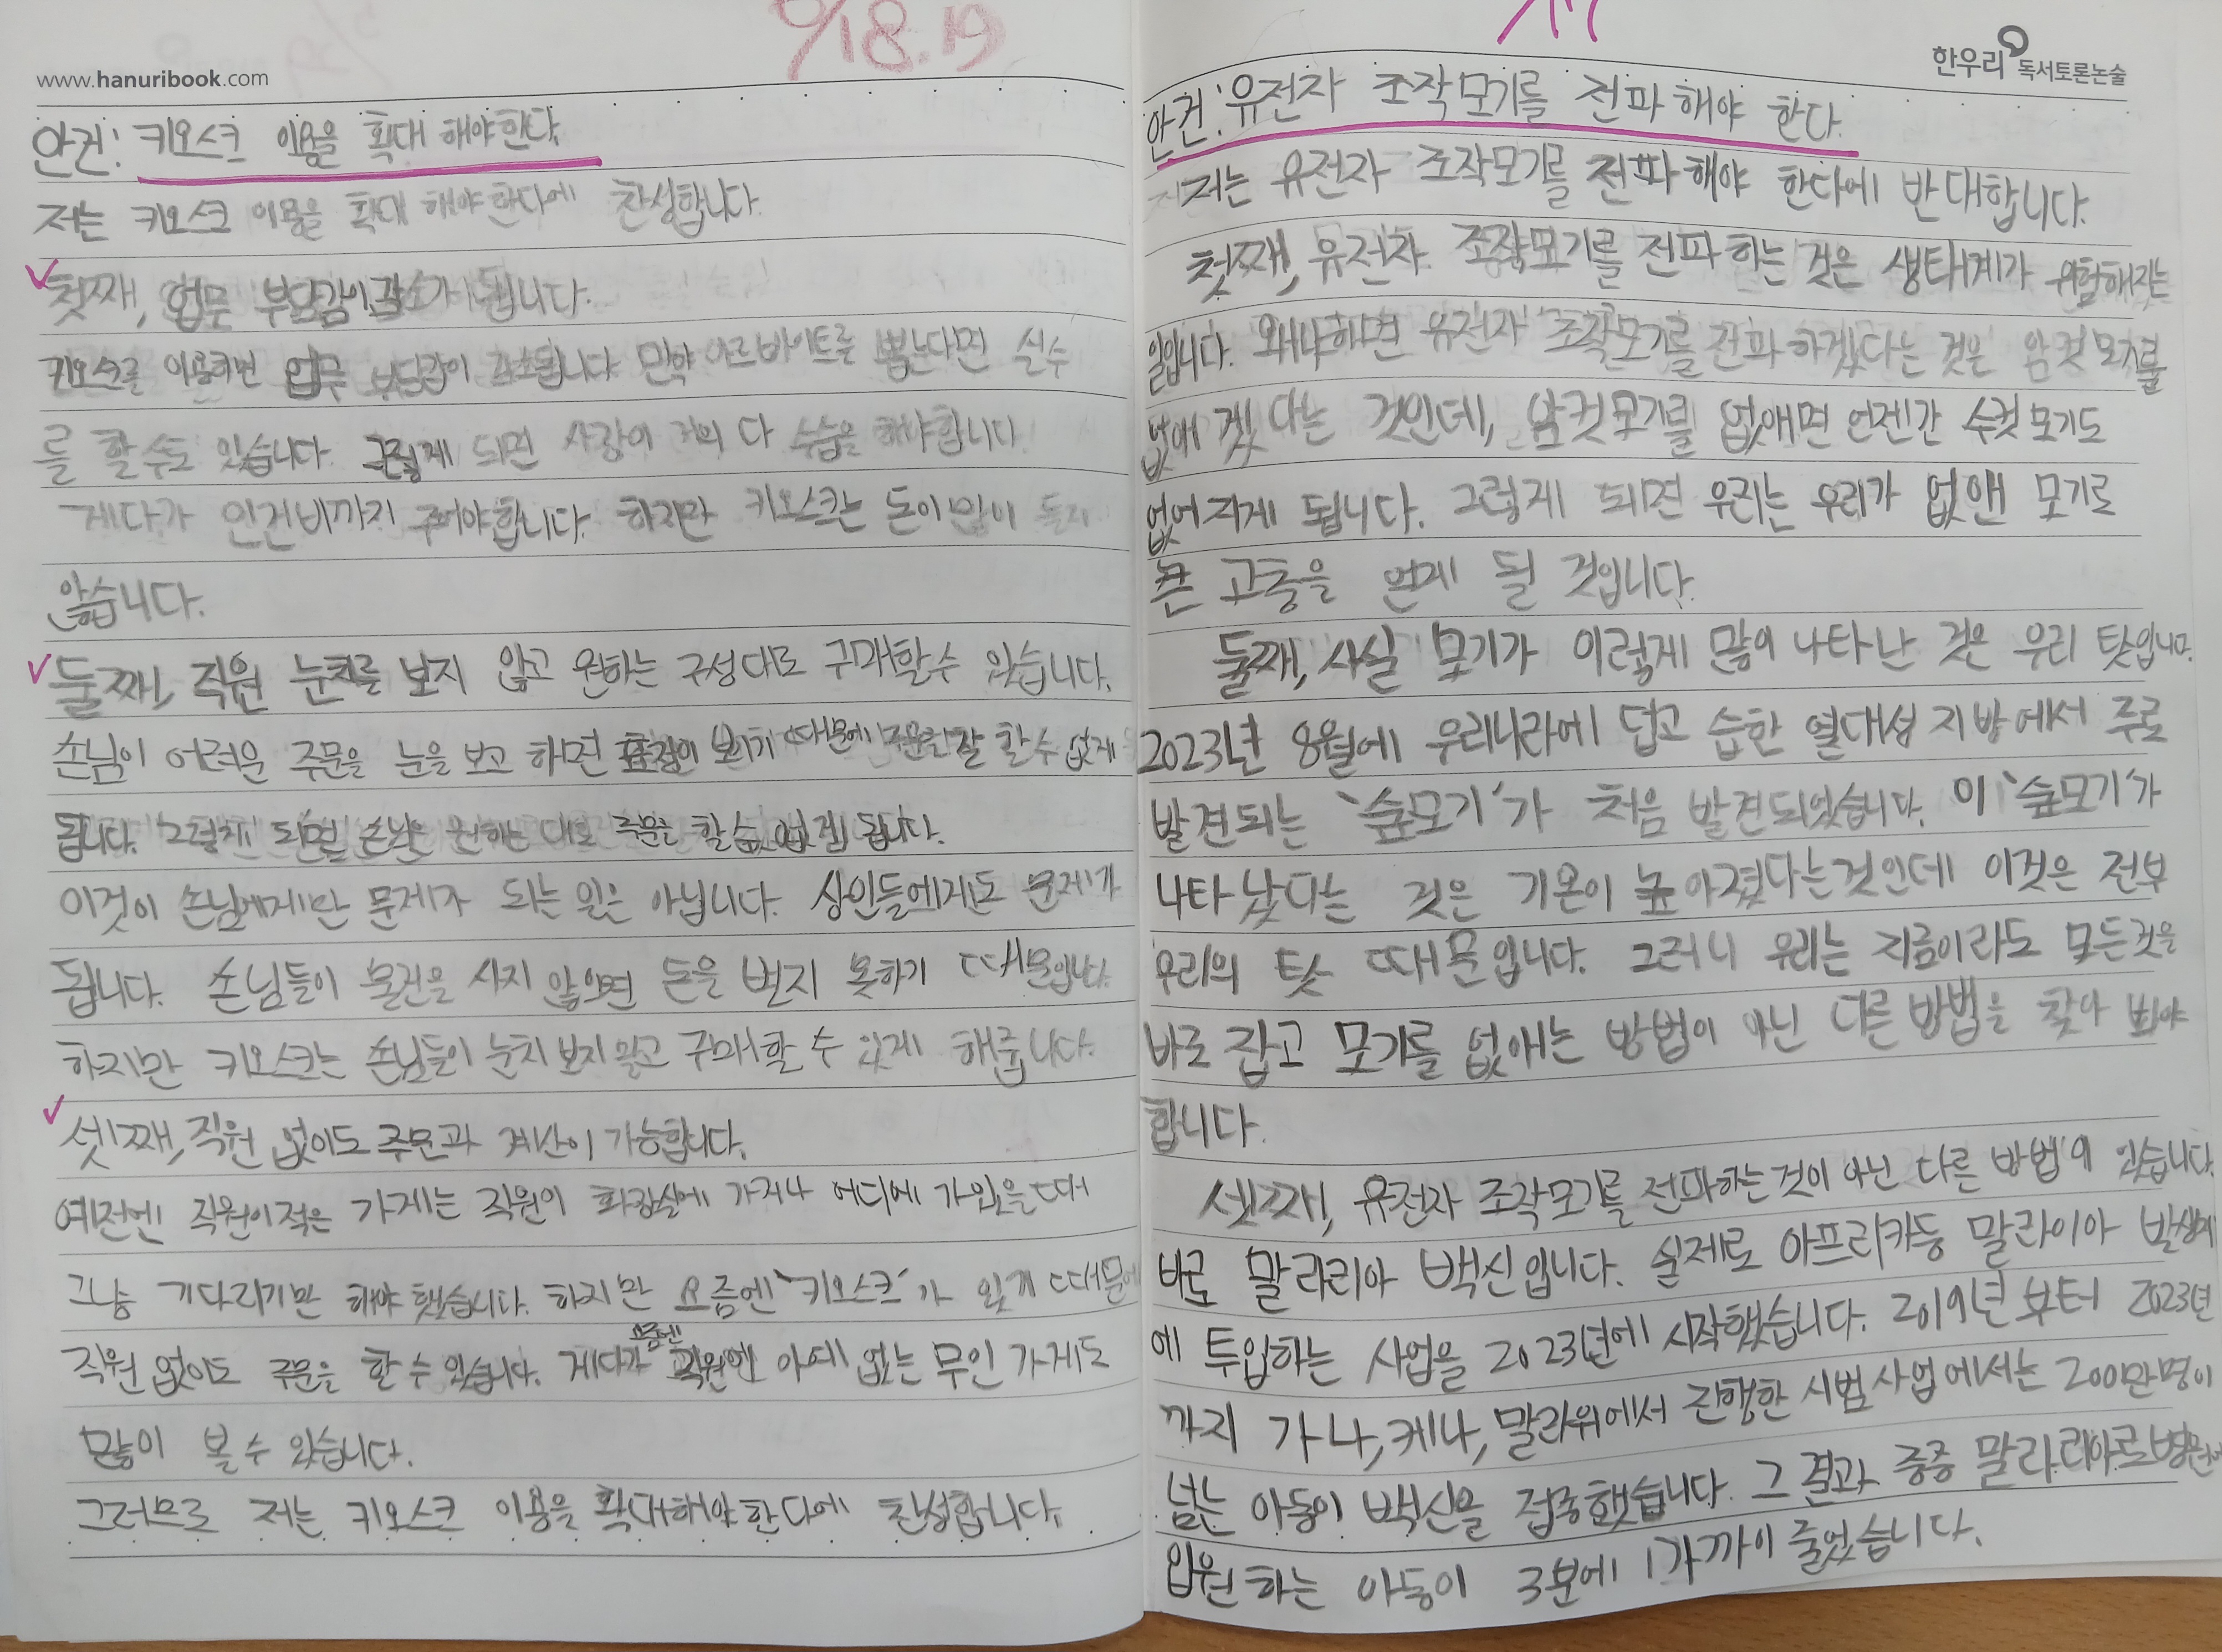 www.hanuribook.com
9/18.19
안건: 키오스크 이용을 확대 해야한다.
저는 키오스크 이용을 확대 해야한다에 찬성합니다.
첫째, 업무 부담감이 감소가 됩니다.
키오스크를 이용하면 업무 부담감이 감소됩니다. 만약 아르바이트를 뽑는다면 실수
를 할 수도 있습니다. 그렇게 되면 사장이 거의 다 수습을 해야합니다.
게다가 인건비까지 주어야합니다. 하지만 키오스크는 돈이 많이 들지
않습니다.
둘째, 직원 눈치를 보지 않고 원하는 구성대로 구매할 수 있습니다.
손님이 어려운 주문을 눈을 보고 하면 표정이 보이기 때문에 주문을 잘 할 수 없게
됩니다. 그렇게 되면 손님은 원하는 대로 주문을 할 수 없게 됩니다.
이것이 손님에게만 문제가 되는 일은 아닙니다. 상인들에게도 문제가
됩니다. 손님들이 물건을 사지 않으면 돈을 벌지 못하기 때문입니다.
하지만 키오스크는 손님들이 눈치 보지 않고 구매할 수 있게 해줍니다.
셋째, 직원 없이도 주문과 계산이 가능합니다.
예전엔 직원이 적은 가게는 직원이 화장실에 가거나 어디에 가있을 때
그냥 기다리기만 해야 했습니다. 하지만 요즘엔 '키오스크'가 있기 때문에
직원 없이도 주문을 할 수 있습니다. 게다가 요즘엔 직원엔 아예 없는 무인 가게도
많이 볼 수 있습니다.
그러므로 저는 키오스크 이용을 확대해야한다에 찬성합니다.
한우리 독서토론논술
안건: 유전자 조작모기를 전파 해야 한다.
저는 유전자 조작모기를 전파해야 한다에 반대합니다.
첫째, 유전자 조작모기를 전파하는 것은 생태계가 위험해지는
일입니다. 왜냐하면 유전자 조작모기를 전파 하겠다는 것은 암컷 모기를
없애겠다는 것인데, 암컷모기를 없애면 언젠간 수컷 모기도
없어지게 됩니다. 그렇게 되면 우리는 우리가 없앤 모기로
큰 고통을 얻게 될 것입니다.
둘째, 사실 모기가 이렇게 많이 나타난 것은 우리 탓입니다.
2023년 8월에 우리나라에 덥고 습한 열대성 지방에서 주로
발견되는 '숲모기'가 처음 발견되었습니다. 이 '숲모기'가
나타났다는 것은 기온이 높아졌다는것인데 이것은 전부
우리의 탓 때문입니다. 그러니 우리는 지금이라도 모든것을
바로 잡고 모기를 없애는 방법이 아닌 다른 방법을 찾아 봐야
합니다.
셋째, 유전자 조작모기를 전파하는것이 아닌 다른 방법이 있습니다.
바로 말라리아 백신입니다. 실제로 아프리카등 말라이아 발생에
에 투입하는 사업을 2023년에 시작했습니다. 2019년부터 2023년
까지 가나, 케냐, 말라위에서 진행한 시범사업에서는 200만명이
넘는 아동이 백신을 접종했습니다. 그 결과 중증 말라리아로 병원에
입원하는 아동이 3분에 1가까이 줄었습니다.